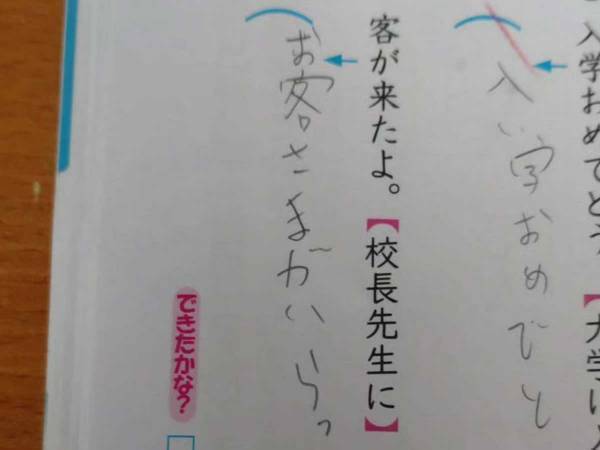 入学おめでとう
【大学に
入い字おめでと
客が来たよ。【校長先生に】
お客さまがいらっ
できたかな?